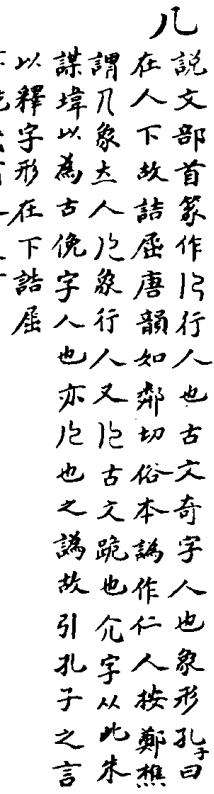 儿
說文部首篆作儿行人也古文奇字人也象形孔子曰
在人下故詰屈唐韻如鄰切俗本譌作仁人按鄭樵
謂人象立人儿象行人又儿古文跪也字从此朱
謀㙔以為古俛字人也亦儿也之譌故引孔子之言
以釋字形在下詰屈